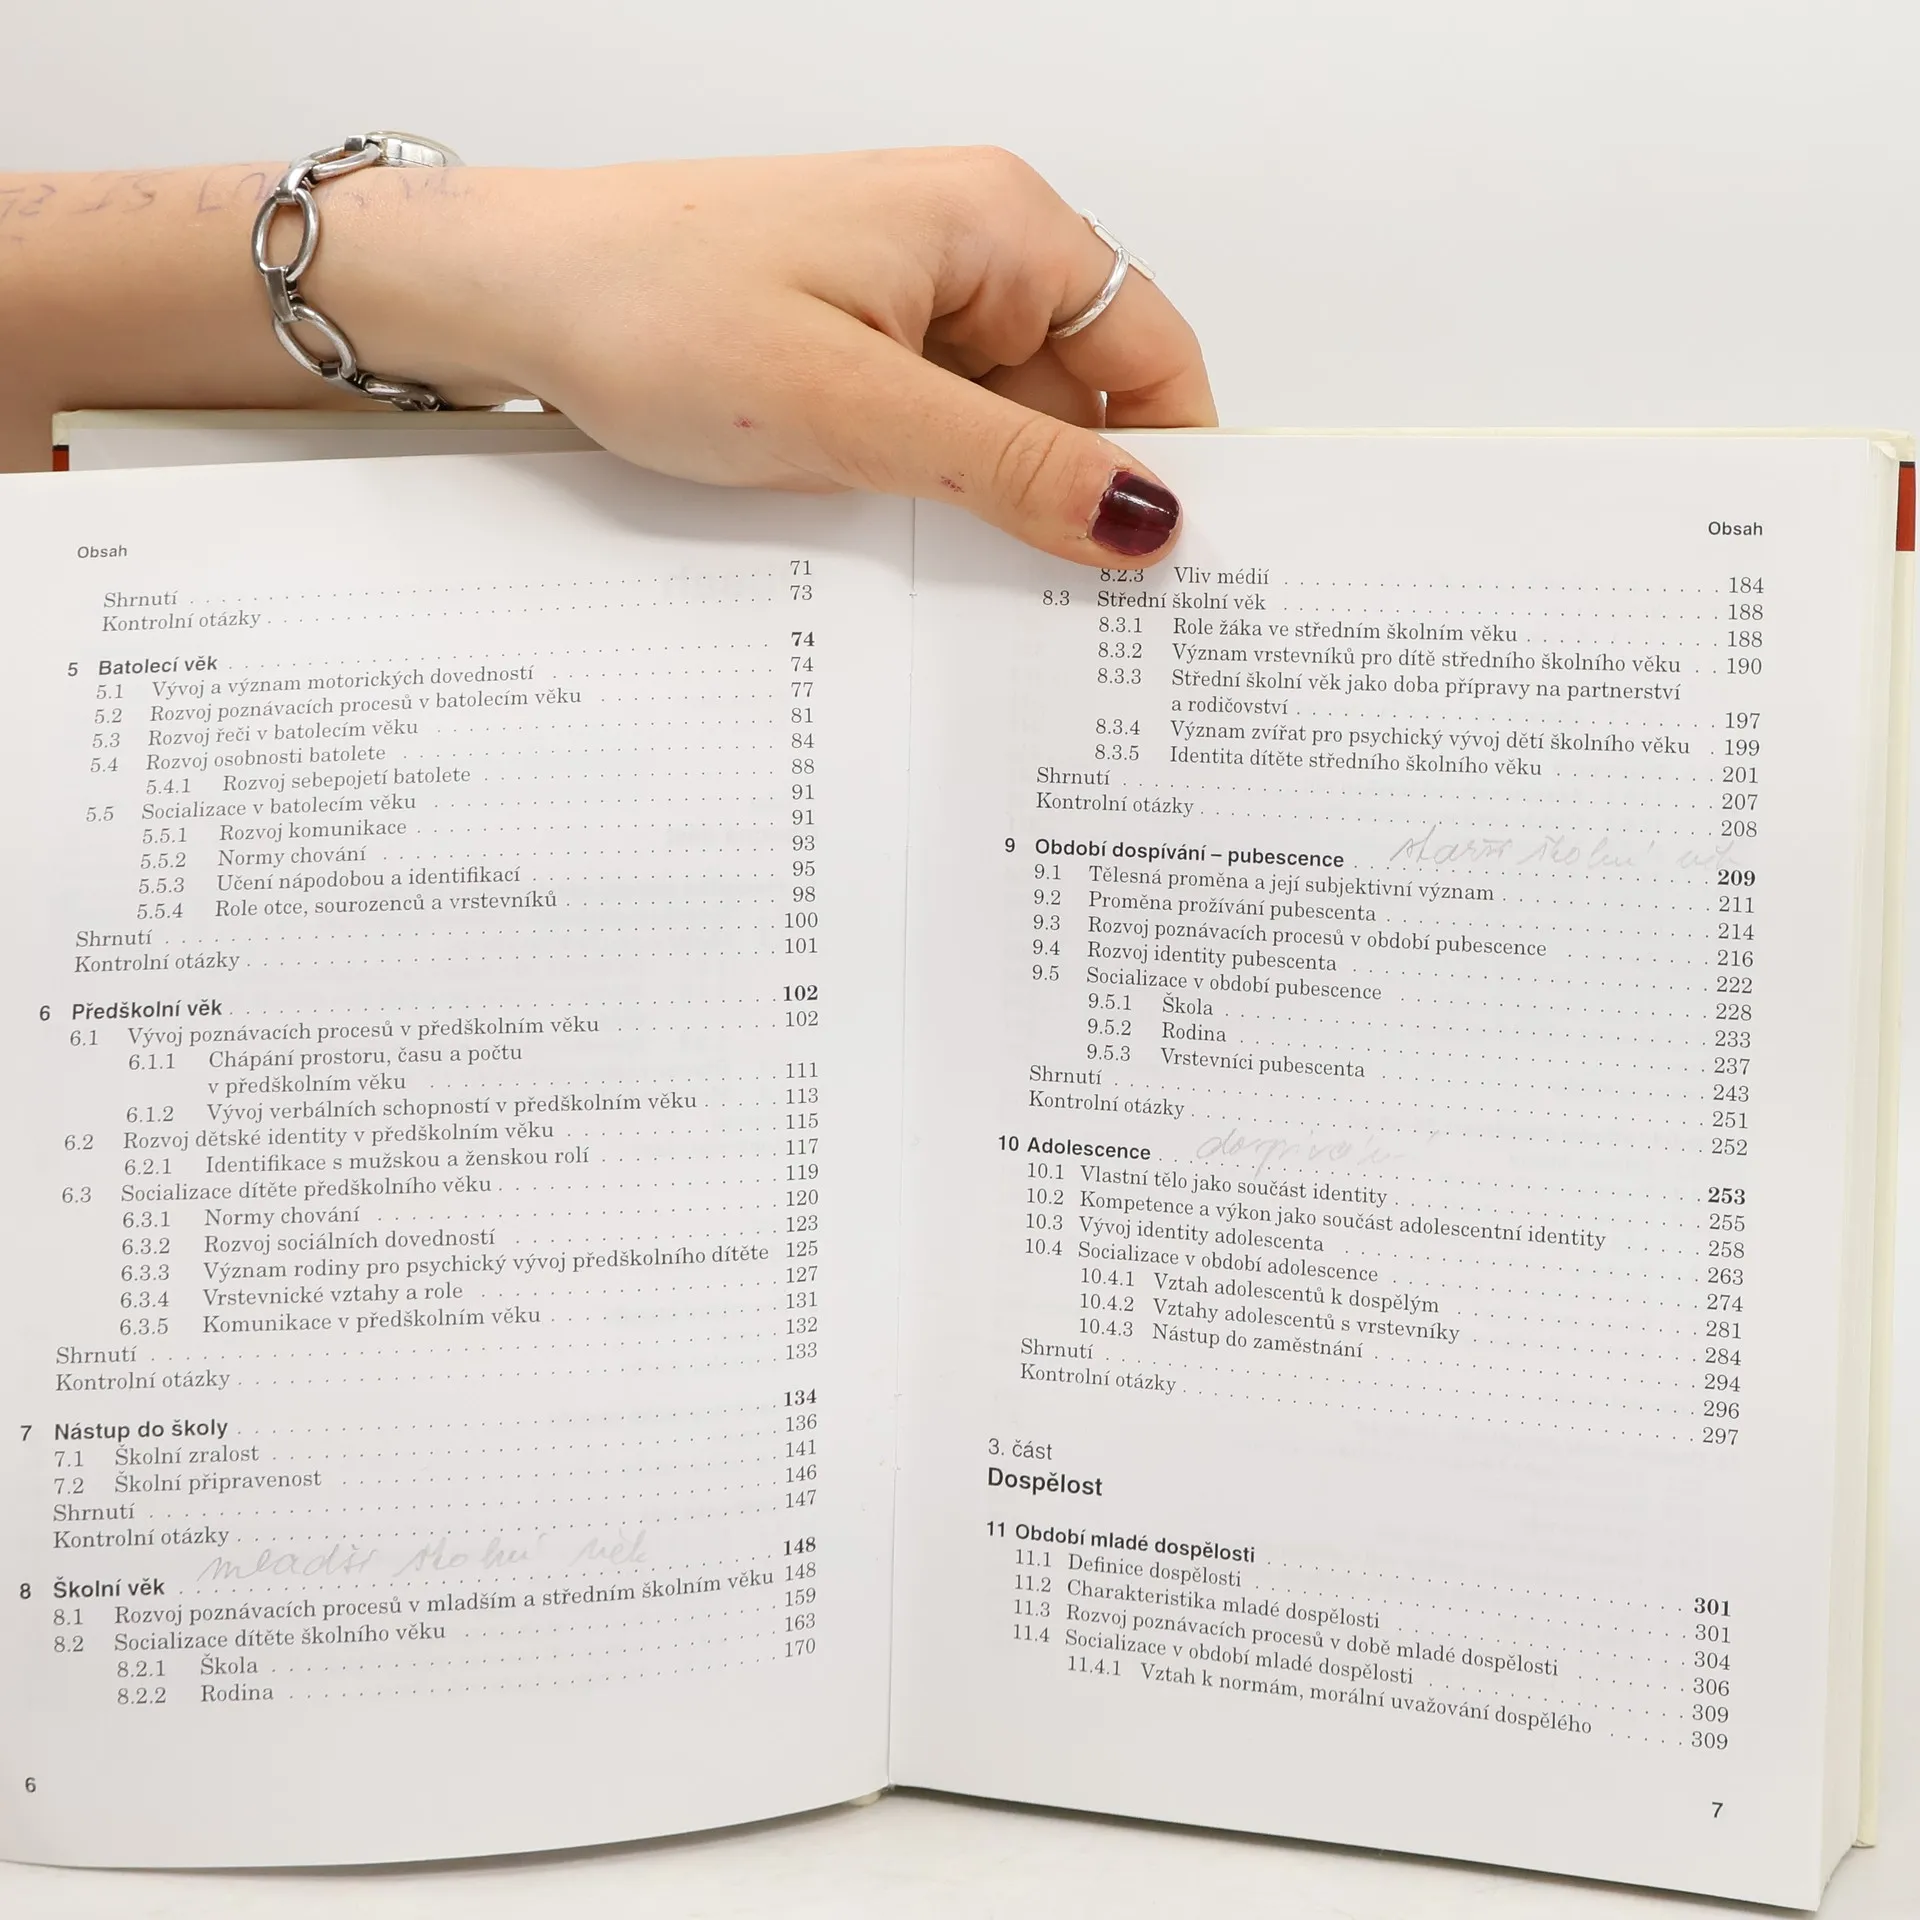 Obsah
Shrnutí . . . 71
Kontrolní otázky . . . 73
5 Batolecí věk . . . 74
5.1 Vývoj a význam motorických dovedností . . . 74
5.2 Rozvoj poznávacích procesů v batolecím věku . . . 77
5.3 Rozvoj řeči v batolecím věku . . . 81
5.4 Rozvoj osobnosti batolete . . . 84
5.4.1 Rozvoj sebepojetí batolete . . . 88
5.5 Socializace v batolecím věku . . . 91
5.5.1 Rozvoj komunikace . . . 91
5.5.2 Normy chování . . . 93
5.5.3 Učení nápodobou a identifikací . . . 95
5.5.4 Role otce, sourozenců a vrstevníků . . . 98
Shrnutí . . . 100
Kontrolní otázky . . . 101
6 Předškolní věk . . . 102
6.1 Vývoj poznávacích procesů v předškolním věku . . . 102
6.1.1 Chápání prostoru, času a počtu
v předškolním věku . . . 111
6.1.2 Vývoj verbálních schopností v předškolním věku . . . 113
6.2 Rozvoj dětské identity v předškolním věku . . . 115
6.2.1 Identifikace s mužskou a ženskou rolí . . . 117
6.3 Socializace dítěte předškolního věku . . . 119
6.3.1 Normy chování . . . 120
6.3.2 Rozvoj sociálních dovedností . . . 123
6.3.3 Význam rodiny pro psychický vývoj předškolního dítěte 125
6.3.4 Vrstevnické vztahy a role . . . 127
6.3.5 Komunikace v předškolním věku . . . 131
Shrnutí . . . 132
Kontrolní otázky . . . 133
7 Nástup do školy . . . 134
7.1 Školní zralost . . . 136
7.2 Školní připravenost . . . 141
Shrnutí . . . 146
Kontrolní otázky . . . 147
mladší školní věk
8 Školní věk . . . 148
8.1 Rozvoj poznávacích procesů v mladším a středním školním věku 148
8.2 Socializace dítěte školního věku . . . 159
8.2.1 Škola . . . 163
8.2.2 Rodina . . . 170
6
Obsah
8.2.3 Vliv médií . . . 184
8.3 Střední školní věk . . . 188
8.3.1 Role žáka ve středním školním věku . . . 188
8.3.2 Význam vrstevníků pro dítě středního školního věku . . 190
8.3.3 Střední školní věk jako doba přípravy na partnerství
a rodičovství . . . 197
8.3.4 Význam zvířat pro psychický vývoj dětí školního věku . 199
8.3.5 Identita dítěte středního školního věku . . . 201
Shrnutí . . . 207
Kontrolní otázky . . . 208
starší školní věk
9 Období dospívání – pubescence . . . 209
9.1 Tělesná proměna a její subjektivní význam . . . 211
9.2 Proměna prožívání pubescenta . . . 214
9.3 Rozvoj poznávacích procesů v období pubescence . . . 216
9.4 Rozvoj identity pubescenta . . . 222
9.5 Socializace v období pubescence . . . 228
9.5.1 Škola . . . 233
9.5.2 Rodina . . . 237
9.5.3 Vrstevníci pubescenta . . . 243
Shrnutí . . . 251
Kontrolní otázky . . . 252
dospívání
10 Adolescence . . . 253
10.1 Vlastní tělo jako součást identity . . . 255
10.2 Kompetence a výkon jako součást adolescentní identity . . . 258
10.3 Vývoj identity adolescenta . . . 263
10.4 Socializace v období adolescence . . . 274
10.4.1 Vztah adolescentů k dospělým . . . 281
10.4.2 Vztahy adolescentů s vrstevníky . . . 284
10.4.3 Nástup do zaměstnání . . . 294
Shrnutí . . . 296
Kontrolní otázky . . . 297
3. část
Dospělost
11 Období mladé dospělosti . . . 301
11.1 Definice dospělosti . . . 301
11.2 Charakteristika mladé dospělosti . . . 304
11.3 Rozvoj poznávacích procesů v době mladé dospělosti . . . 306
11.4 Socializace v období mladé dospělosti . . . 309
11.4.1 Vztah k normám, morální uvažování dospělého . . . 309
7